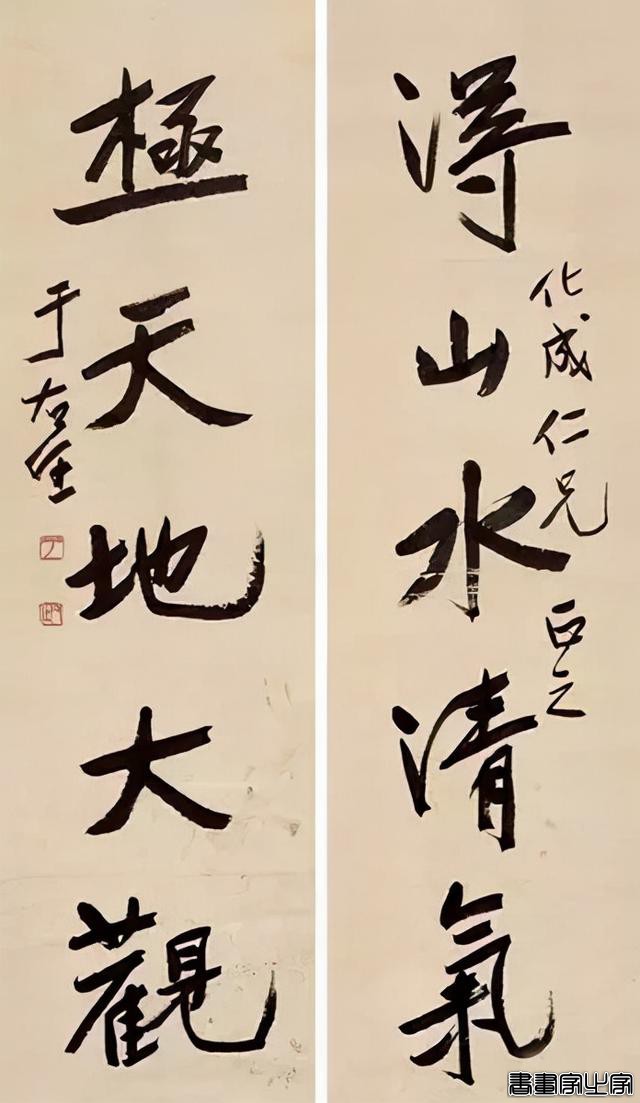 得山水清氣
化成仁兄正之
極天地大觀
于右任
書畫家必字